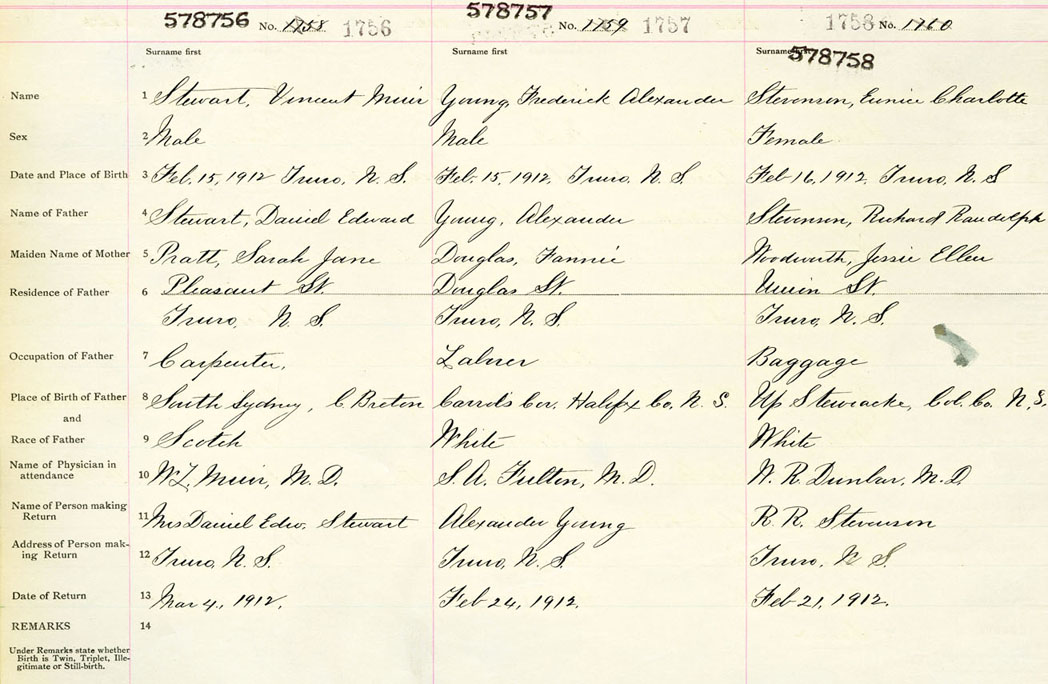 578756 No. 1758 1756 578757 No. 1759 1757 1758 No. 1760
Surname first Surname first Surname first 578758
Name 1 Stewart, Vincent Muir Young, Frederick Alexander Stevenson, Eunice Charlotte
Sex 2 Male Male Female
Date and Place of Birth 3 Feb. 15, 1912 Truro, N. S. Feb. 15, 1912, Truro, N. S. Feb 16, 1912, Truro, N. S
Name of Father 4 Stewart, Daniel Edward Young, Alexander Stevenson, Richard Randolph
Maiden Name of Mother 5 Pratt, Sarah Jane Douglas, Fannie Woodworth, Jessie Ellen
Residence of Father 6 Pleasant St. Douglas St. Union St.
Truro, N. S. Truro, N. S. Truro, N. S.
Occupation of Father 7 Carpenter, Labrer Baggage
Place of Birth of Father 8 South Sydney, C. Breton Carrols Cor. Halifx Co, N. S. Up Stewiacke, Col. Co. N. S.
and
Race of Father 9 Scotch White White
Name of Physician in
attendance 10 W L Muir, M. D. S. A. Fulton, M. D. W. R. Dunbar, M. D
Name of Person making
Return 11 Mrs Daniel Edw. Stewart Alexander Young R. R. Stevenson
Address of Person mak-
ing Return 12 Truro, N. S. Truro, N. S. Truro, N S.
Date of Return 13 Mar 4, 1912. Feb 24, 1912. Feb 21, 1912.
REMARKS 14
Under Remarks state whether
Birth is Twin, Triplet, Ille-
gitimate or Still-birth.